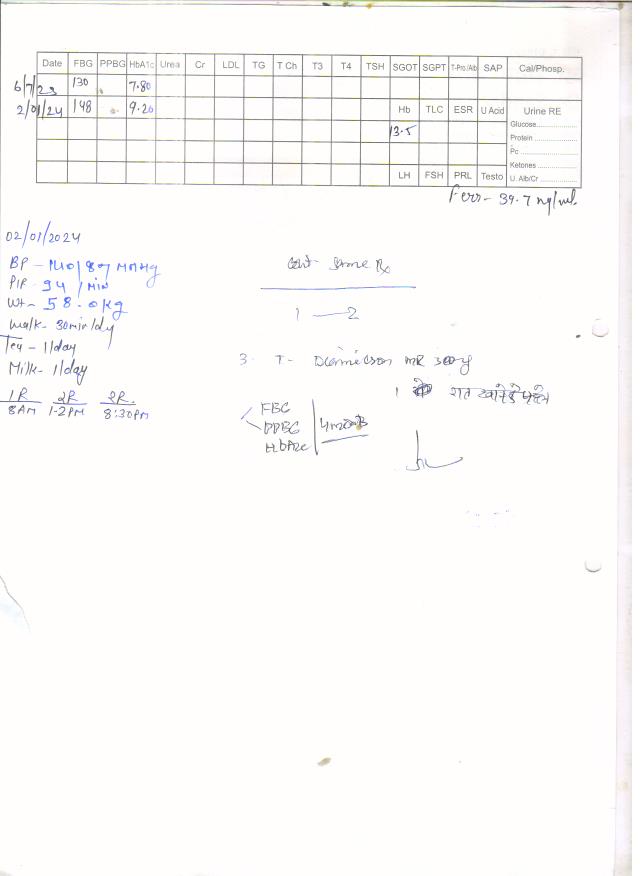 Date FBG PPBG HbA1c Urea Cr LDL TG T Ch T3 T4 TSH SGOT SGPT T-Pro./Alb SAP Cal/Phosp.
6/7/23 130 7.80
2/01/24 148 9.20 Hb TLC ESR U Acid Urine RE
Glucose
13.5 Protein
Pc
Ketones
LH FSH PRL Testo U. Alb/Cr
Ferr- 39.7 ng/mL
02/01/2024
BP - 140/87 MMHg
P/R - 94 /MIN
Wt- 58.0kg
Walk- 30min/dy
Tea - 1/day
Milk- 1/day
1R 2R 2R.
8AM 1-2PM 8:30PM
Cont- Same Rx
1 — 2
3. T- MR 30mg
1 रात खाने से पहले
FBG
PPBG
HbA1c